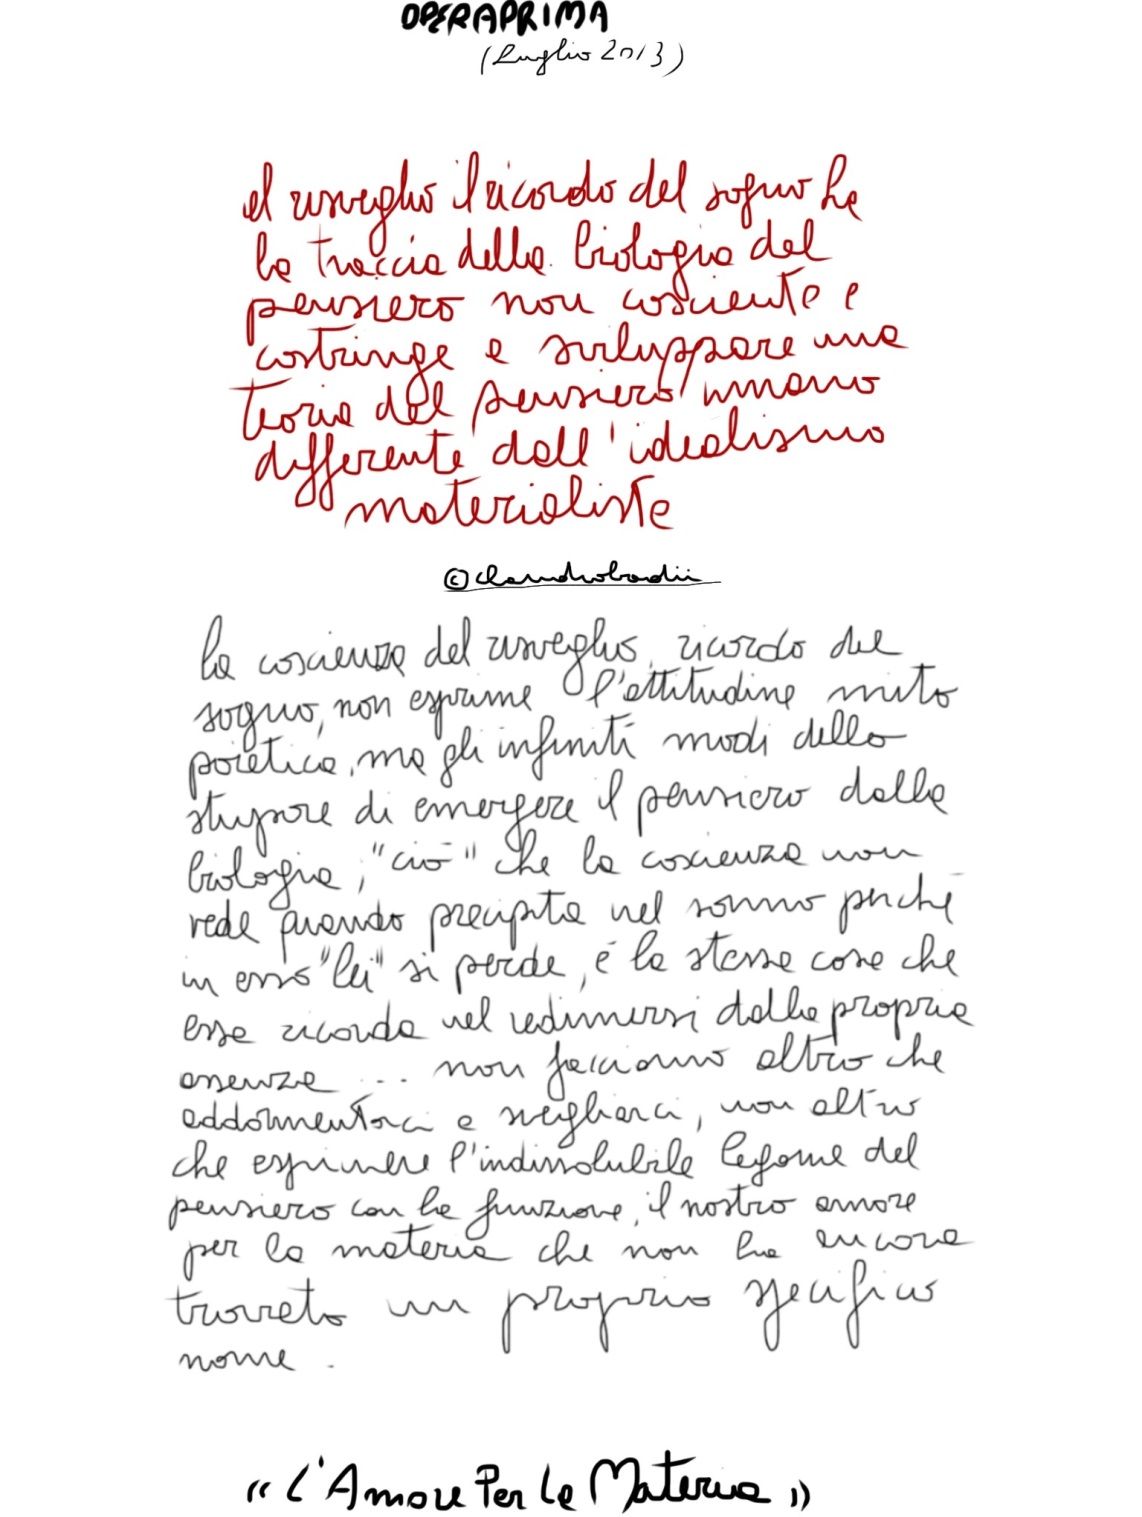 OPERAPRIMA
(Luglio 2013)
al risveglio il ricordo del sogno ha
la traccia della biologia del
pensiero non cosciente e
costringe a sviluppare una
teoria del pensiero umano
differente dall'idealismo
materialista
©claudiobadii
la coscienza del risveglio, ricordo del
sogno, non esprime l'attitudine mito
poietica, ma gli infiniti modi dello
stupore di emergere il pensiero dalla
biologia; "ciò" che la coscienza non
vede quando precipita nel sonno perché
in esso "lei" si perde, é la stessa cosa che
essa ricorda nel redimersi dalla propria
assenza ... non facciamo altro che
addormentarci e svegliarci, non altro
che esprimere l'indissolubile legame del
pensiero con la funzione, il nostro amore
per la materia che non ha ancora
trovato un proprio specifico
nome.
"L'Amore Per La Materia"